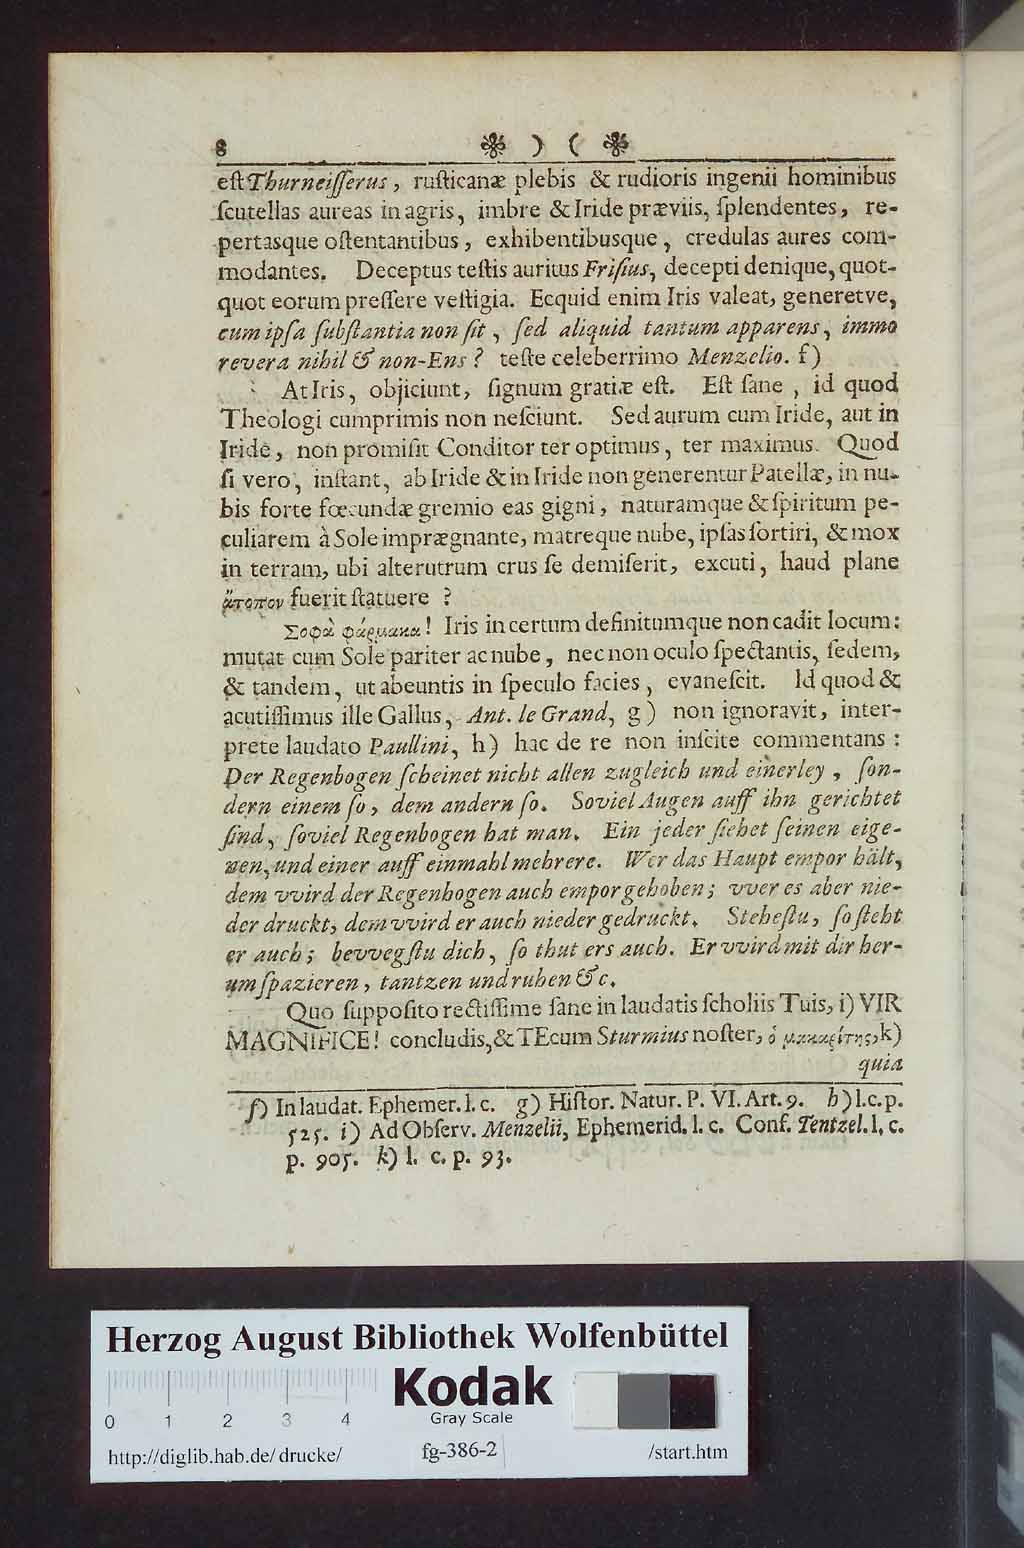 8 ❀ ) ( ❀
eſt Thurneiſſerus, ruſticanæ plebis & rudioris ingenii hominibus
ſcutellas aureas in agris, imbre & Iride præviis, ſplendentes, re-
pertasque oſtentantibus, exhibentibusque, credulas aures com-
modantes. Deceptus teſtis auritus Friſius, decepti denique, quot-
quot eorum preſſere veſtigia. Ecquid enim Iris valeat, generetve,
cum ipſa ſubſtantia non ſit, ſed aliquid tantum apparens, immo
revera nihil & non-Ens? teſte celeberrimo Menzelio. f)
At Iris, objiciunt, ſignum gratiæ eſt. Eſt ſane, id quod
Theologi cumprimis non neſciunt. Sed aurum cum Iride, aut in
Iride, non promiſit Conditor ter optimus, ter maximus. Quod
ſi vero, inſtant, ab Iride & in Iride non generentur Patellæ, in nu-
bis forte fœcundæ gremio eas gigni, naturamque & ſpiritum pe-
culiarem à Sole imprægnante, matreque nube, ipſas ſortiri, & mox
in terram, ubi alterutrum crus ſe demiſerit, excuti, haud plane
ἄτοπον fuerit ſtatuere?
Σοφὰ φάρμακα! Iris in certum definitumque non cadit locum:
mutat cum Sole pariter ac nube, nec non oculo ſpectantis, ſedem,
& tandem, ut abeuntis in ſpeculo facies, evaneſcit. Id quod &
acutiſſimus ille Gallus, Ant. le Grand, g) non ignoravit, inter-
prete laudato Paullini, h) hac de re non inſcite commentans:
Der Regenbogen ſcheinet nicht allen zugleich und einerley, ſon-
dern einem ſo, dem andern ſo. Soviel Augen auff ihn gerichtet
ſind, ſoviel Regenbogen hat man. Ein jeder ſiehet ſeinen eige-
nen, und einer auff einmahl mehrere. Wer das Haupt empor hält,
dem vvird der Regenbogen auch empor gehoben; vver es aber nie-
der druckt, dem vvird er auch nieder gedruckt. Steheſtu, ſo ſteht
er auch; bevvegſtu dich, ſo thut ers auch. Er vvird mit dir her-
um ſpazieren, tantzen und ruhen &c.
Quo ſuppoſito rectiſſime ſane in laudatis ſcholiis Tuis, i) VIR
MAGNIFICE! concludis, & TEcum Sturmius noſter, ὁ μακαρίτης, k)
quia
f) In laudat. Ephemer. l. c. g) Hiſtor. Natur. P. VI. Art. 9. h) l. c. p.
525. i) Ad Obſerv. Menzelii, Ephemerid. l. c. Conf. Tentzel. l. c.
p. 905. k) l. c. p. 93.
Herzog August Bibliothek Wolfenbüttel
Kodak
Gray Scale
0 1 2 3 4
http://diglib.hab.de/drucke/ fg-386-2 /start.htm